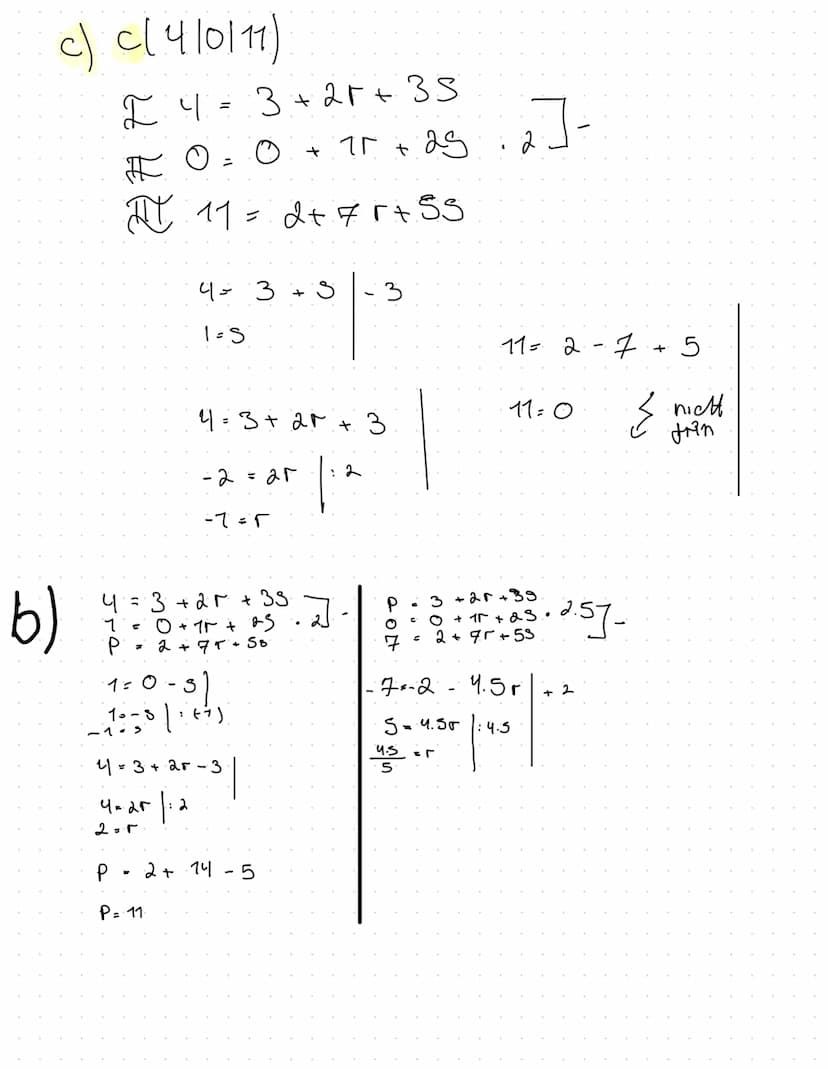 c) C(4|0|11)
I 4 = 3 + 2r + 3s
II 0 = 0 + 1r + 2s · 2 ] -
III 11 = 2 + 7r + 5s
4 = 3 + s | - 3
1 = s
4 = 3 + 2r + 3 |
-2 = 2r | : 2
-1 = r
11 = 2 - 7 + 5
11 = 0 nicht drin
b)
4 = 3 + 2r + 3s
1 = 0 + 1r + 2s · 2 ] -
P = 2 + 7r + 5s
1 = 0 - s |
1 = -s | : (-1)
-1 = s
4 = 3 + 2r - 3 |
4 = 2r | : 2
2 = r
P = 2 + 14 - 5
P = 11
P = 3 + 2r + 3s
0 = 0 + 1r + 2s · 2.5 ] -
7 = 2 + 7r + 5s
-7 = -2 - 4.5r | + 2
5 = 4.5r | : 4.5
4.5/5 = r